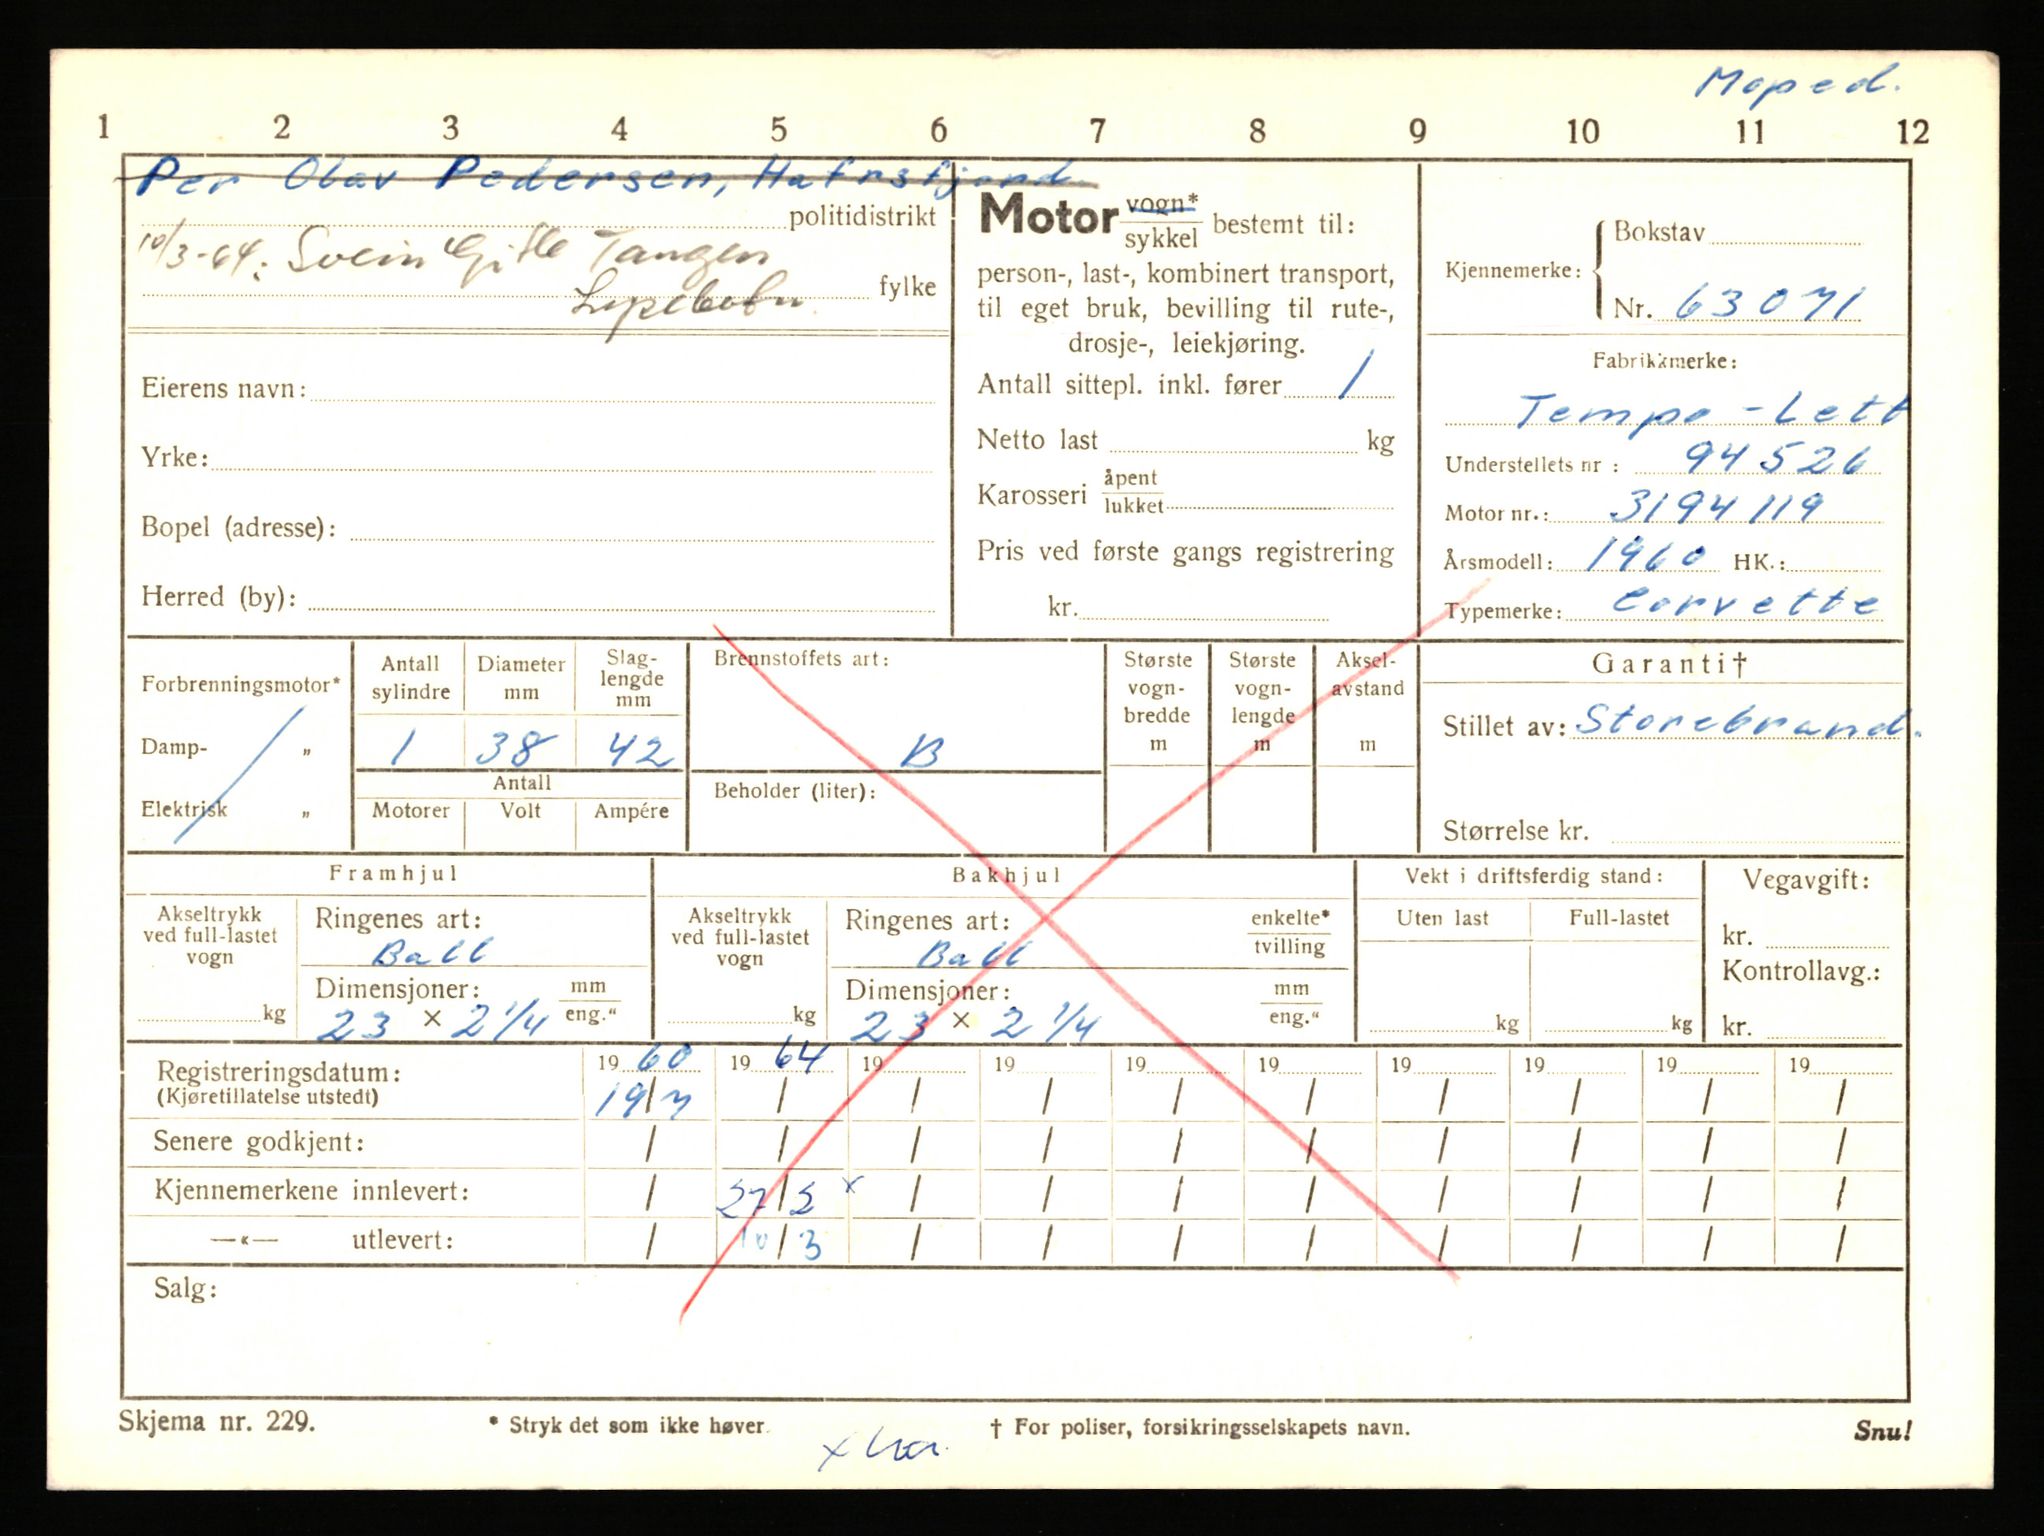 Moped.
1 2 3 4 5 6 7 8 9 10 11 12
Per Olav Pedersen, Hafrsfjord.
politidistrikt
10/3-64: Svein Tangen
fylke
Eierens navn:
Yrke:
Bopel (adresse):
Herred (by):
Motor vogn* sykkel bestemt til:
person-, last-, kombinert transport,
til eget bruk, bevilling til rute-,
drosje-, leiekjøring.
Antall sittepl. inkl. fører 1
Netto last kg
Karosseri åpent lukket
Pris ved første gangs registrering
kr.
Kjennemerke: Bokstav
Nr. 63071
Fabrikkmerke:
Tempo-Lett
Understellets nr : 94526
Motor nr.: 3194119
Årsmodell: 1960 HK.:
Typemerke: Corvette
Forbrenningsmotor*
Damp- „
Elektrisk „
Antall sylindre Diameter mm Slag-lengde mm
1 38 42
Antall
Motorer Volt Ampére
Brennstoffets art:
B
Beholder (liter):
Største vogn-bredde m
Største vogn-lengde m
Aksel-avstand m
Garanti†
Stillet av: Storebrand.
Størrelse kr.
Framhjul
Akseltrykk ved full-lastet vogn
kg
Ringenes art:
Ball
Dimensjoner: mm eng.“
23 × 2 1/4
Bakhjul
Akseltrykk ved full-lastet vogn
kg
Ringenes art: enkelte* tvilling
Ball
Dimensjoner: mm eng.“
23 × 2 1/4
Vekt i driftsferdig stand:
Uten last Full-lastet
kg kg
Vegavgift:
kr.
Kontrollavg.:
kr.
Registreringsdatum: 1960 1964 19 19 19 19 19 19 19 19
(Kjøretillatelse utstedt) 19/7 / / / / / / / / /
Senere godkjent: / / / / / / / / / /
Kjennemerkene innlevert: / 27/2 x / / / / / / / /
—«— utlevert: / 10/3 / / / / / / / /
Salg:
Skjema nr. 229. * Stryk det som ikke høver. † For poliser, forsikringsselskapets navn. Snu!